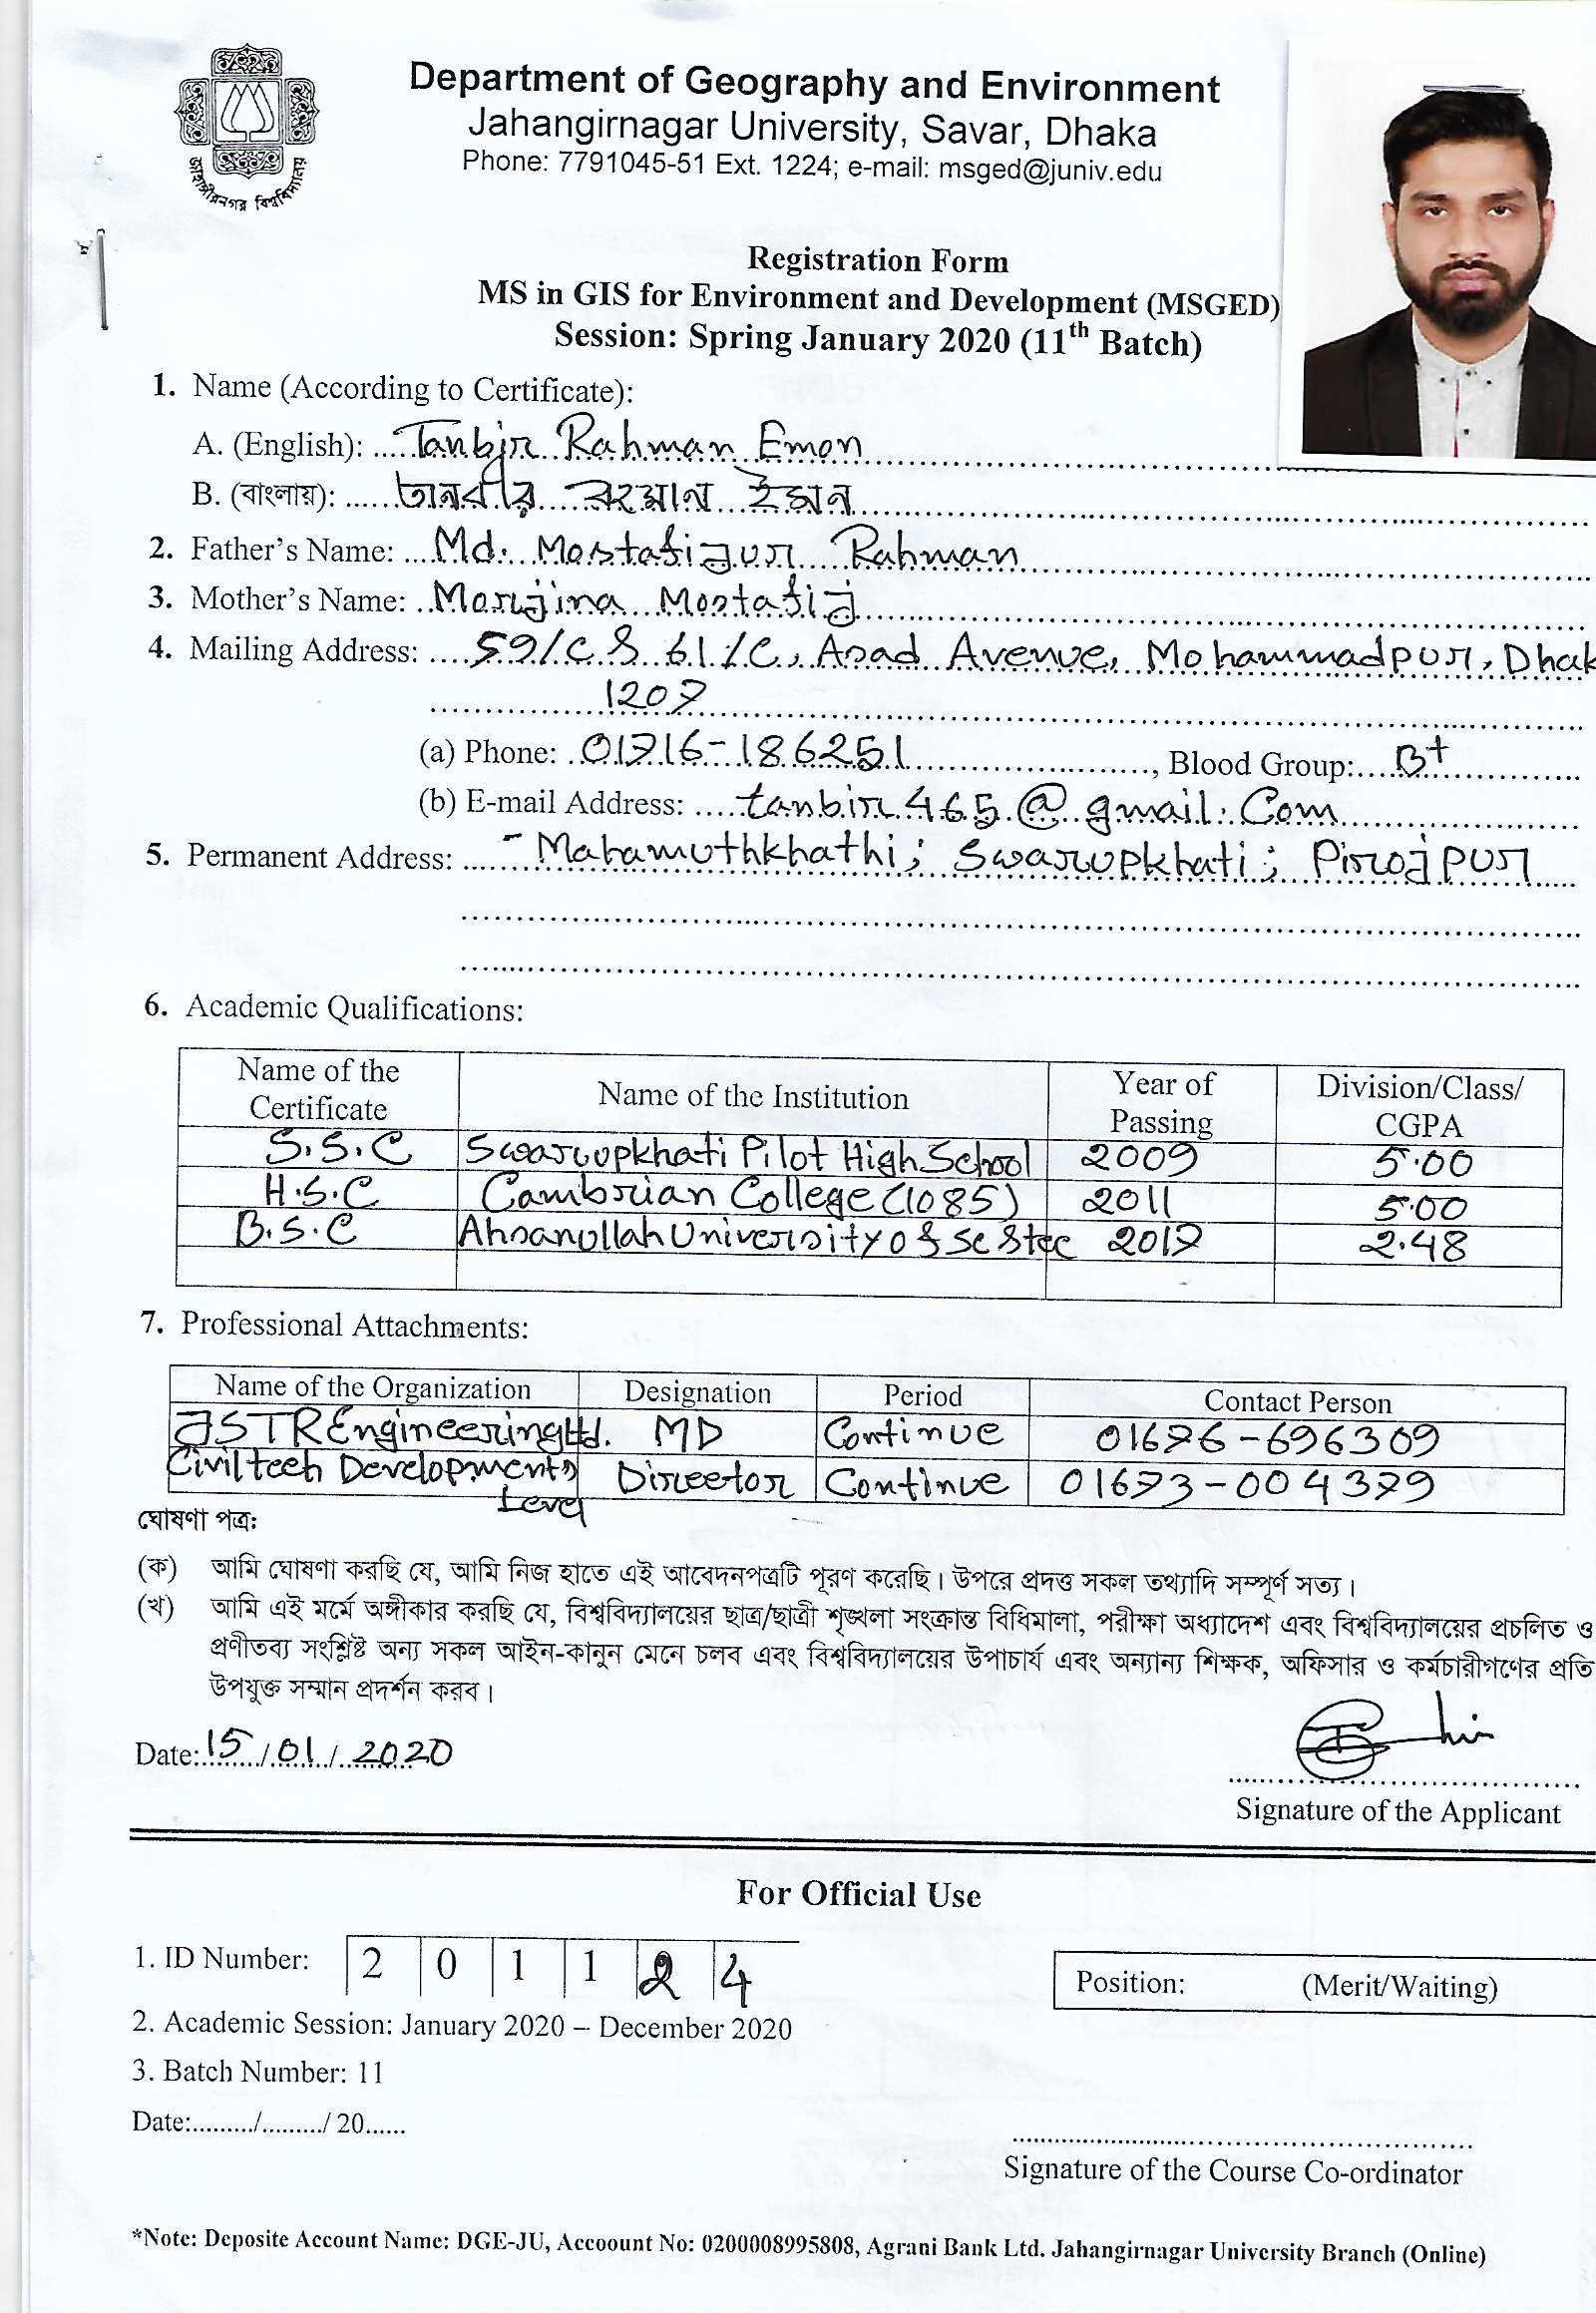 জাহাঙ্গীরনগর বিশ্ববিদ্যালয়
Department of Geography and Environment
Jahangirnagar University, Savar, Dhaka
Phone: 7791045-51 Ext. 1224; e-mail: msged@juniv.edu
Registration Form
MS in GIS for Environment and Development (MSGED)
Session: Spring January 2020 (11th Batch)
1. Name (According to Certificate):
A. (English): Tanbir Rahman Emon
B. (বাংলায়): তানবীর রহমান ইমন
2. Father's Name: Md. Mostafizur Rahman
3. Mother's Name: Morijina Mostafiz
4. Mailing Address: 59/C & 61/C, Asad Avenue, Mohammadpur, Dhak
1207
(a) Phone: 01716-186251, Blood Group: B+
(b) E-mail Address: tanbir465@gmail.Com
5. Permanent Address: Mahamuthkhathi; Swarupkhati; Pirojpur
6. Academic Qualifications:
Name of the Certificate Name of the Institution Year of Passing Division/Class/ CGPA
S.S.C Swarupkhati Pilot High School 2009 5.00
H.S.C Cambrian College (1085) 2011 5.00
B.S.C Ahsanullah University of Sc & Tec 2017 2.48
7. Professional Attachments:
Name of the Organization Designation Period Contact Person
JSTR Engineering Ltd. MD Continue 01676-696309
Civiltech Developments Director Continue 01673-004379
Level
ঘোষণা পত্র:
(ক) আমি ঘোষণা করছি যে, আমি নিজ হাতে এই আবেদনপত্রটি পূরণ করেছি। উপরে প্রদত্ত সকল তথ্যাদি সম্পূর্ণ সত্য।
(খ) আমি এই মর্মে অঙ্গীকার করছি যে, বিশ্ববিদ্যালয়ের ছাত্র/ছাত্রী শৃঙ্খলা সংক্রান্ত বিধিমালা, পরীক্ষা অধ্যাদেশ এবং বিশ্ববিদ্যালয়ের প্রচলিত ও
প্রণীতব্য সংশ্লিষ্ট অন্য সকল আইন-কানুন মেনে চলব এবং বিশ্ববিদ্যালয়ের উপাচার্য এবং অন্যান্য শিক্ষক, অফিসার ও কর্মচারীগণের প্রতি
উপযুক্ত সম্মান প্রদর্শন করব।
Date: 15/01/2020
Signature of the Applicant
For Official Use
1. ID Number: 2 0 1 1 2 4
Position: (Merit/Waiting)
2. Academic Session: January 2020 – December 2020
3. Batch Number: 11
Date:........./........./ 20......
Signature of the Course Co-ordinator
*Note: Deposite Account Name: DGE-JU, Accoount No: 0200008995808, Agrani Bank Ltd. Jahangirnagar University Branch (Online)